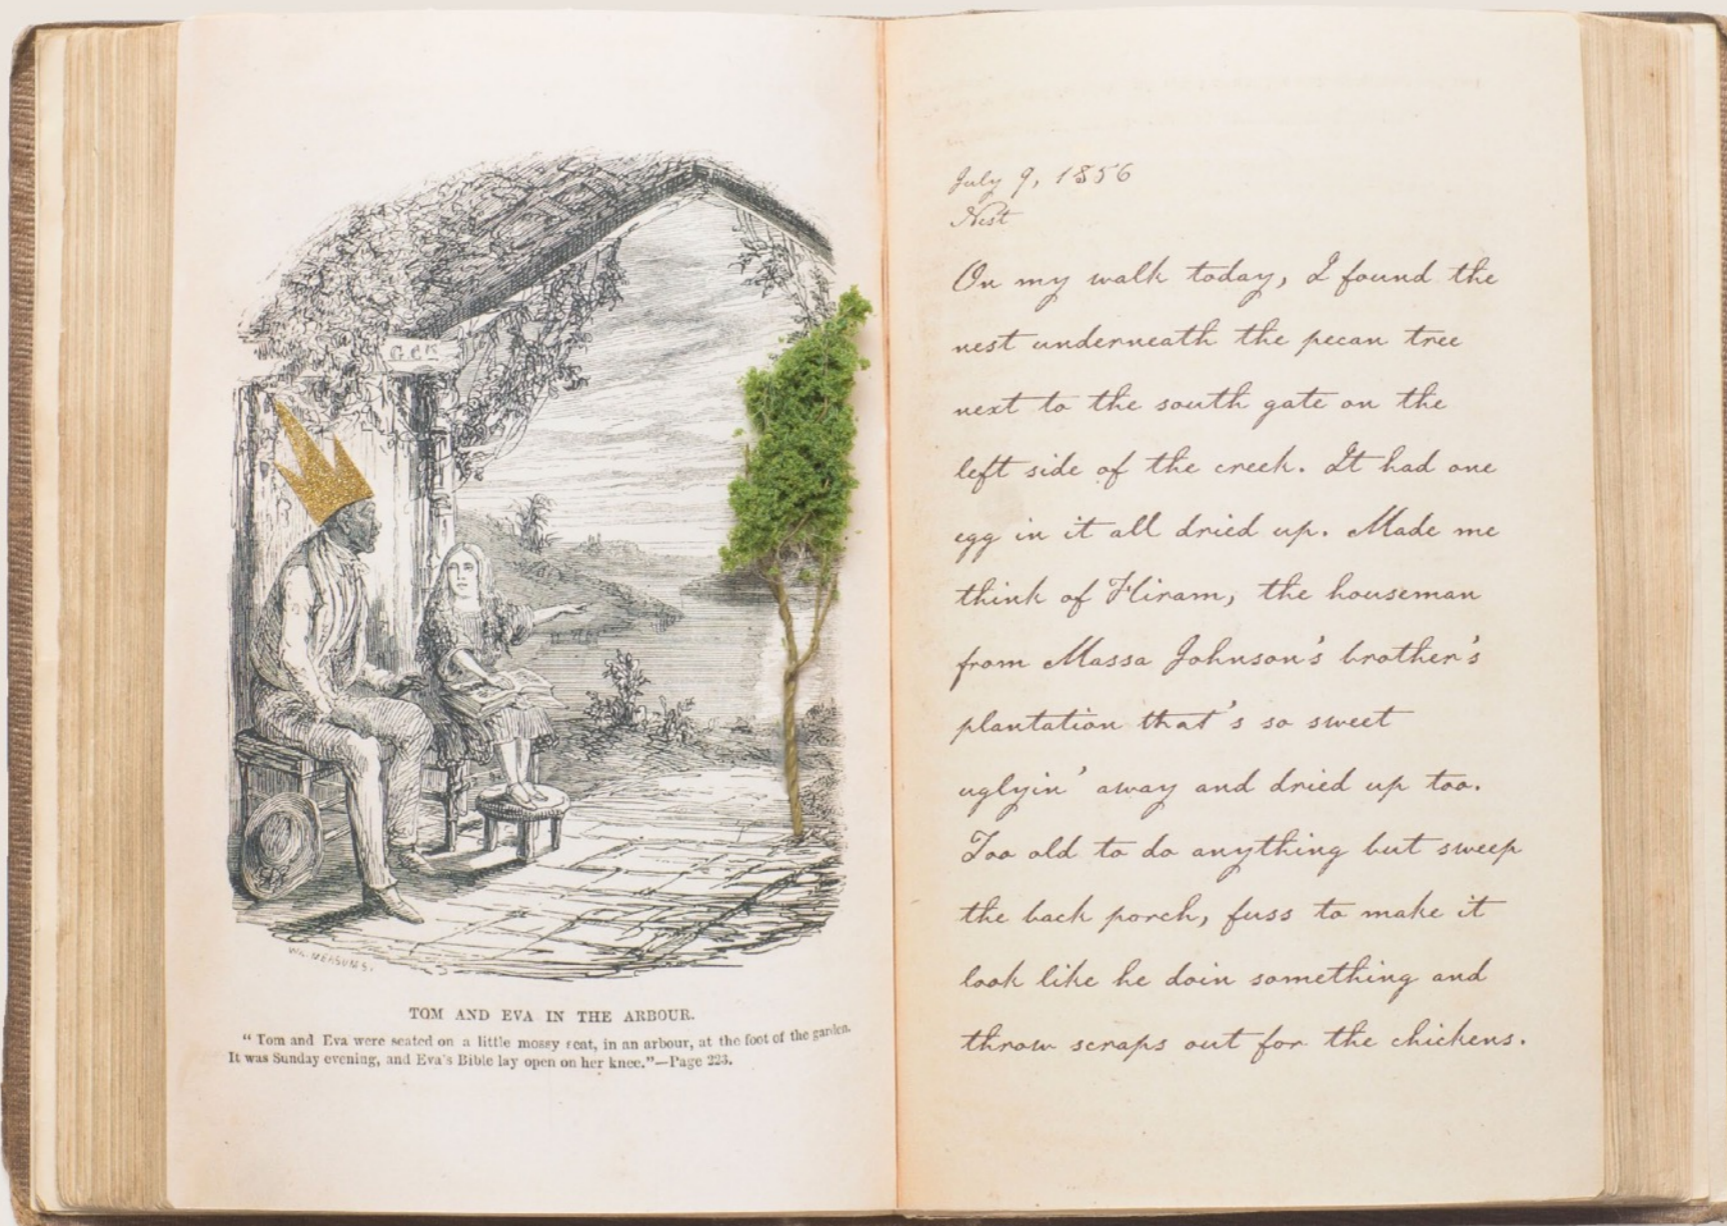 GCK
WM. MEASOM S.
TOM AND EVA IN THE ARBOUR.
"Tom and Eva were seated on a little mossy seat, in an arbour, at the foot of the garden.
It was Sunday evening, and Eva's Bible lay open on her knee."—Page 223.
July 9, 1856
Nest
On my walk today, I found the
nest underneath the pecan tree
next to the south gate on the
left side of the creek. It had one
egg in it all dried up. Made me
think of Hiram, the houseman
from Massa Johnson's brother's
plantation that's so sweet
uglyin' away and dried up too.
Too old to do anything but sweep
the back porch, fuss to make it
look like he doin something and
throw scraps out for the chickens.